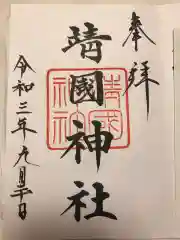 奉拝
靖國神社
靖國神社
令和三年九月二十日